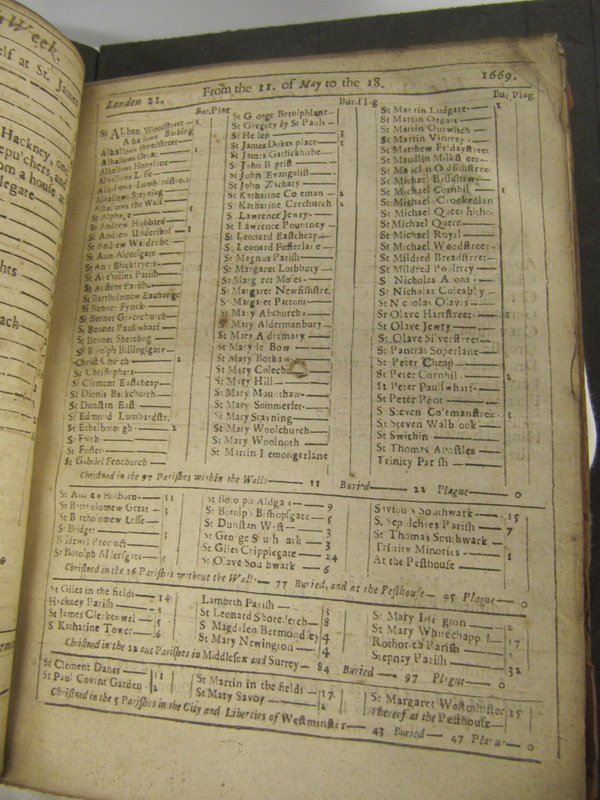 Week.
elf at St. James
Hackney, one
epulchers, and
om a house at
legate
London 21. From the 11. of May to the 18. 1669.
Bur. Plag
St Alban Woodstreet — 1
Alhallows Barking
Alhallows Breadstreet
Alhallows Great — 1
Alhallows Honylane
Alhallows Lesse
Alhallows Lumbardstreet
Alhallows Stayning
Alhallows the Wall
St Alphage — 1
St Andrew Hubbard
St Andrew Undershaft — 1
St Andrew Wardrobe
St Ann Aldersgate
St Ann Blackfryers
St Antholins Parish
St Austins Parish
St Bartholomew Exchange
St Bennet Fynck
St Bennet Gracechurch
St Bennet Paulswharf
St Bennet Sherehog
St Botolph Billingsgate
Christ Church — 2
St Christophers
St Clement Eastcheap
St Dionis Backchurch
St Dunstan East
St Edmund Lumbardstr.
St Ethelborough — 2
St Faith
St Foster
St Gabriel Fenchurch
Bur. Plag
St George Botolphlane
St Gregory by St Pauls
St Hellen — 3
St James Dukes place — 1
St James Garlickhithe
St John Baptist
St John Evangelist
St John Zachary
St Katharine Coleman — 2
St Katharine Creechurch — 2
S Lawrence Jewry
S Lawrence Pountney
St Leonard Eastcheap
St Leonard Fosterlane
St Magnus Parish
St Margaret Lothbury
St Margaret Moses
St Margaret Newfishstre.
St Margaret Pattons
St Mary Abchurch
St Mary Aldermanbury
St Mary Aldermary
St Mary le Bow
St Mary Bothaw
St Mary Colechu
St Mary Hill
St Mary Mounthaw
St Mary Sommerset
St Mary Stayning
St Mary Woolchurch
St Mary Woolnoth
St Martin Iremongerlane
Bur. Plag
St Martin Ludgate — 1
St Martin Orgars
St Martin Outwitch
St Martin Vintrey
St Matthew Fridaystreet
St Maudlin Milkstreet
St Maudlin Oldfishstreet
St Michael Bassishaw
St Michael Cornhil — 1
St Michael Crookedlan
St Michael Queenhithe
St Michael Quern
St Michael Royal
St Michael Woodstreet
St Mildred Breadstreet
St Mildred Poultrey
S Nicholas Acons
St Nicholas Coleabby
St Nicholas Olaves
St Olave Hartstreet — 1
St Olave Jewry
St Olave Silverstreet
St Pancras Soperlane
St Peter Cheap
St Peter Cornhil — 2
St Peter Paulswharf
St Peter Poor
S Steven Colemanstree — 1
St Steven Walbrook
St Swithin
St Thomas Apostles
Trinity Parish
Christned in the 97 Parishes within the Walls — 11 Buried — 22 Plague — 0
St Andrew Holborn — 11
St Bartholomew Great — 3
St Bartholomew Lesse
S Bridget — 3
Bridewel Precinct
St Botolph Aldersgate — 6
St Botolph Aldgate — 9
St Botolph Bishopsgate — 5
St Dunstan West — 3
St George Southwark — 3
St Giles Cripplegate — 24
St Olave Southwark — 6
Saviours Southwark — 15
S. Sepulchres Parish — 7
St Thomas Southwark
Trinity Minories — 1
At the Pesthouse
Christned in the 16 Parishes without the Walls — 77 Buried, and at the Pesthouse — 95 Plague — 0
St Giles in the fields — 14
Hackney Parish
St James Clerkenwel — 5
S Katharine Tower — 6
Lambeth Parish — 3
St Leonard Shoreditch — 8
S Magdalen Bermondsey — 4
St Mary Newington — 4
St Mary Islington — 2
St Mary Whitechappel — 17
Rotherith Parish — 1
Stepney Parish — 32
Christned in the 12 out Parishes in Middlesex and Surrey — 84 Buried — 97 Plague — 0
St Clement Danes — 11
St Paul Covent Garden — 2
St Martin in the fields — 17
St Mary Savoy — 2
St Margaret Westminster — 15
Thereof at the Pesthouse
Christned in the 5 Parishes in the City and Liberties of Westminster — 43 Buried 47 Plague — 0